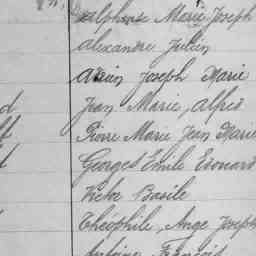 Alphonse Marie Joseph
Alexandre Julien
Marie
Joseph
Jean Marie, Alfred
Pierre Marie Jean Marie
Georges Emile Edouard
Victor Basile
Théophile, Ange Joseph
Antoine François